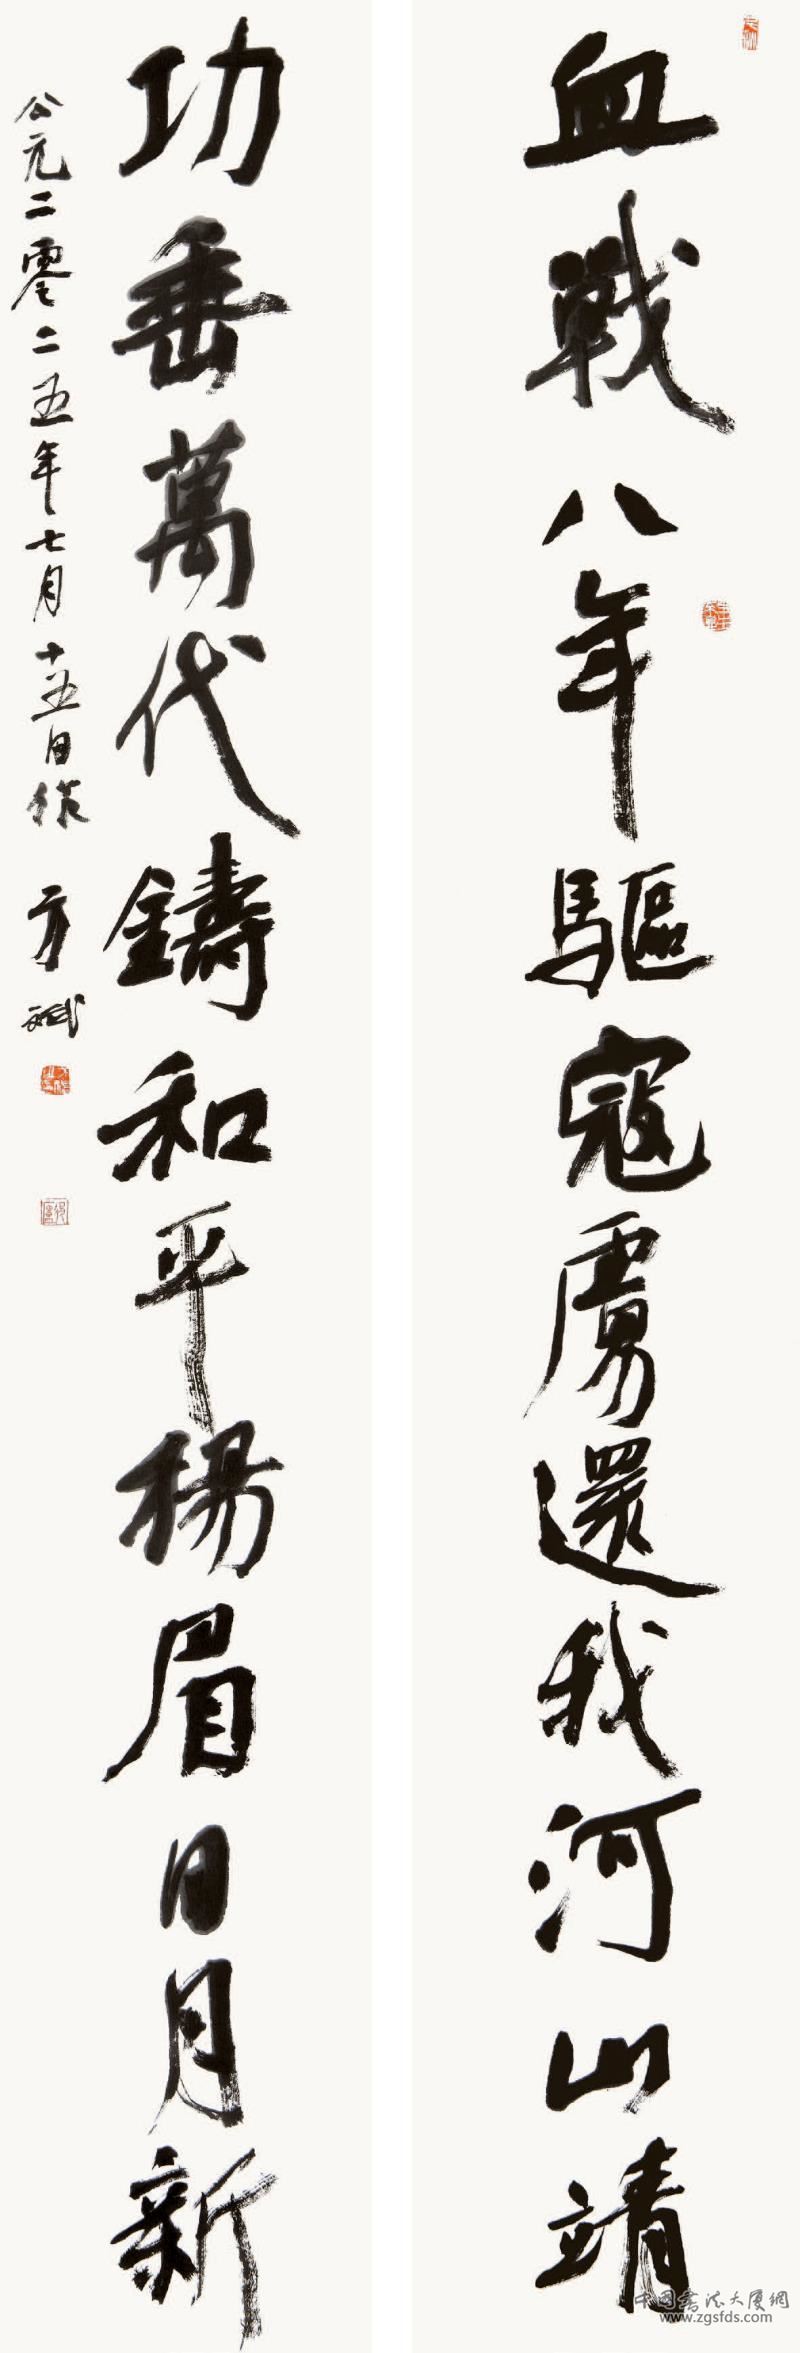 血戰八年驅寇虜還我河山靖
功垂萬代鑄和平楊眉日月新
公元二零二五年七月十五日作 方斌
中國書法大厦網
www.zgsfds.com